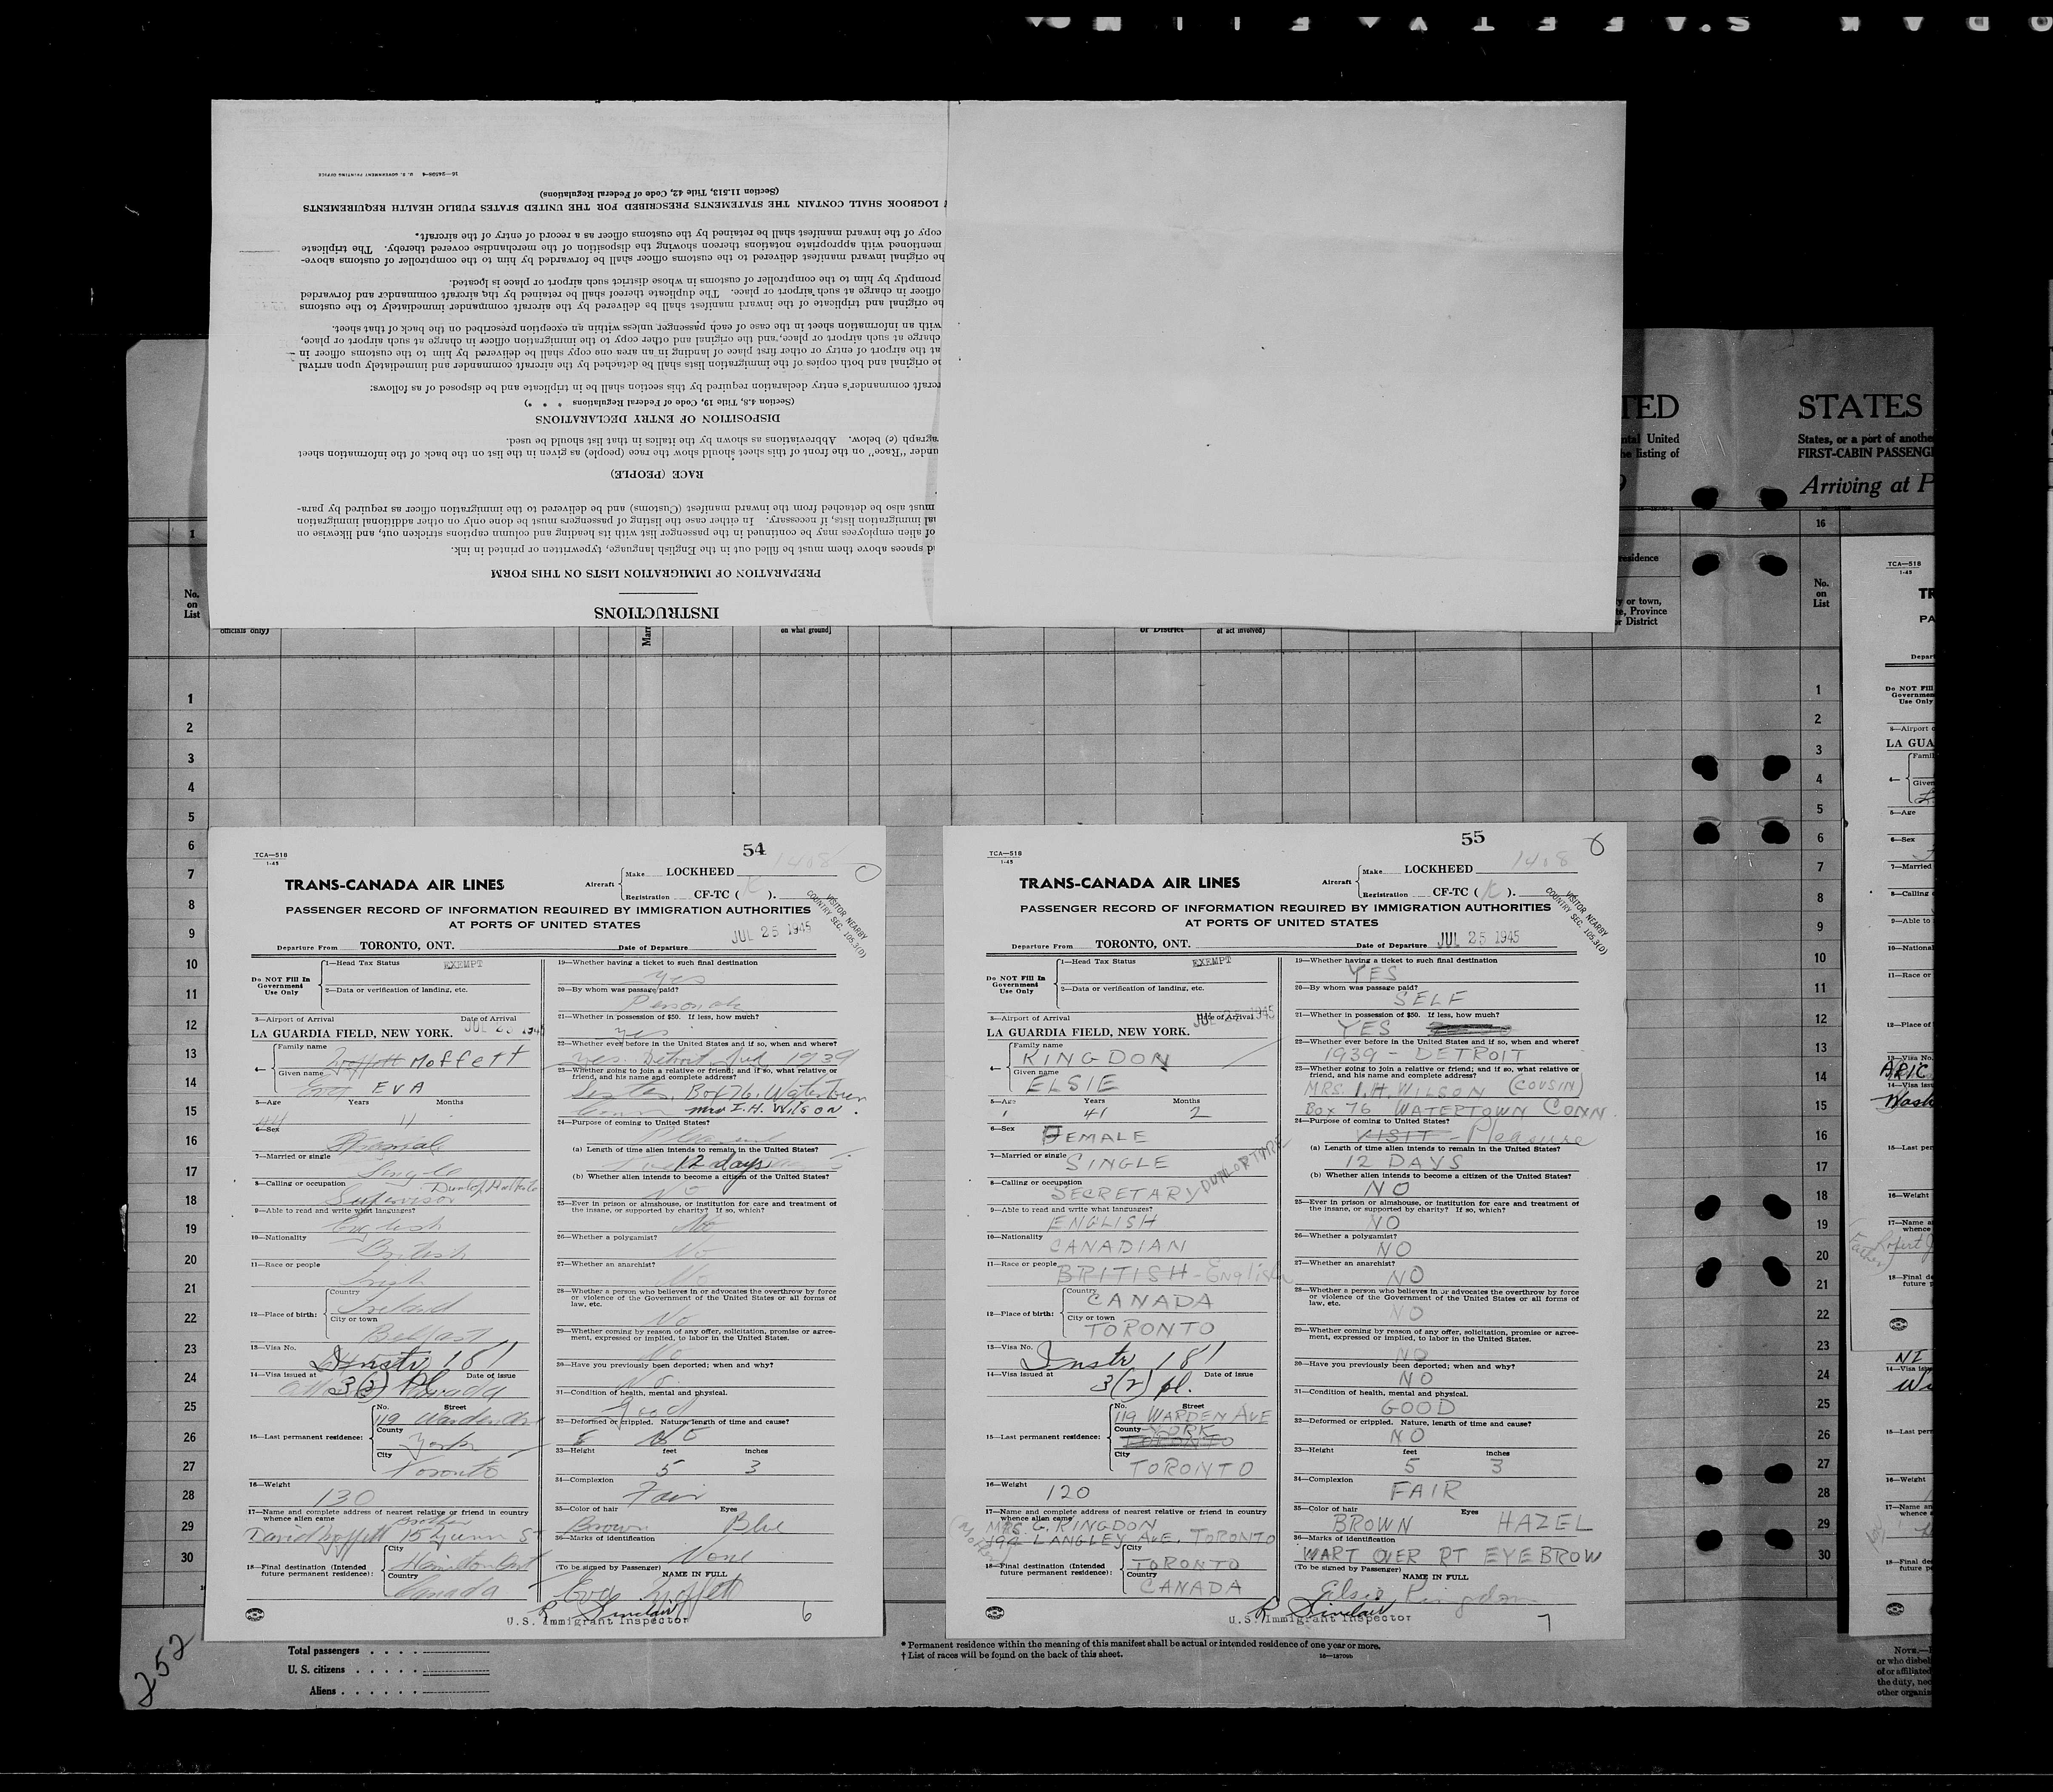 INSTRUCTIONS
PREPARATION OF IMMIGRATION LISTS ON THIS FORM
d spaces above them must be filled out in the English language, typewritten or printed in ink.
of alien employees may be continued in the passenger list with its heading and column captions stricken out, and likewise on
al immigration lists, if necessary. In either case the listing of passengers must be done only on other additional immigration
must also be detached from the inward manifest (Customs) and be delivered to the immigration officer as required by para-
RACE (PEOPLE)
under "Race" on the front of this sheet should show the race (people) as given in the list on the back of the information sheet
agraph (c) below. Abbreviations as shown by the italics in that list should be used.
DISPOSITION OF ENTRY DECLARATIONS
(Section 4.8, Title 19, Code of Federal Regulations * * *)
rcraft commander's entry declaration required by this section shall be in triplicate and be disposed of as follows:
he original and both copies of the immigration lists shall be detached by the aircraft commander and immediately upon arrival
at the airport of entry or other first place of landing in an area one copy shall be delivered by him to the customs officer in
charge at such airport or place, and the original and other copy to the immigration officer in charge at such airport or place,
with an information sheet in the case of each passenger unless within an exception prescribed on the back of that sheet.
he original and triplicate of the inward manifest shall be delivered by the aircraft commander immediately to the customs
officer in charge at such airport or place. The duplicate thereof shall be retained by the aircraft commander and forwarded
promptly by him to the comptroller of customs in whose district such airport or place is located.
he original inward manifest delivered to the customs officer shall be forwarded by him to the comptroller of customs above-
mentioned with appropriate notations thereon showing the disposition of the merchandise covered thereby. The triplicate
copy of the inward manifest shall be retained by the customs officer as a record of entry of the aircraft.
LOGBOOK SHALL CONTAIN THE STATEMENTS PRESCRIBED FOR THE UNITED STATES PUBLIC HEALTH REQUIREMENTS
(Section 11.513, Title 42, Code of Federal Regulations)
U. S. GOVERNMENT PRINTING OFFICE
TED STATES
ntal United States, or a port of anothe
he listing of FIRST-CABIN PASSENG
Arriving at P
No. on List
officials only)
on what ground]
or District
of act involved)
esidence
y or town,
te, Province
r District
16
No. on List
1
2
3
4
5
6
7
8
9
10
11
12
13
14
15
16
17
18
19
20
21
22
23
24
25
26
27
28
29
30
54
TCA—518
1-45
1408
TRANS-CANADA AIR LINES
Aircraft Make LOCKHEED
Registration CF-TC ( K ).
VISITOR NEARBY
COUNTRY SEC. 105.3(D)
PASSENGER RECORD OF INFORMATION REQUIRED BY IMMIGRATION AUTHORITIES
AT PORTS OF UNITED STATES
Departure From TORONTO, ONT. Date of Departure JUL 25 1945
Do NOT Fill In Government Use Only
1—Head Tax Status EXEMPT
2—Data or verification of landing, etc.
3—Airport of Arrival Date of Arrival
LA GUARDIA FIELD, NEW YORK. JUL 25 1945
4— Family name Moffett
Given name EVA
5—Age Years Months
44 11
6—Sex
7—Married or single Single
8—Calling or occupation Supervisor
9—Able to read and write what languages? English
10—Nationality British
11—Race or people Irish
12—Place of birth: Country Ireland
City or town Belfast
13—Visa No. Instr. 181
14—Visa issued at 3(2) Pl. Date of issue
15—Last permanent residence: No. Street 119 Warden Ave
County York
City Toronto
16—Weight 130
17—Name and complete address of nearest relative or friend in country whence alien came
brother
David Moffett 15 St
18—Final destination (Intended future permanent residence): City Hamilton Ont
Country Canada
19—Whether having a ticket to such final destination
Yes
20—By whom was passage paid?
Personal
21—Whether in possession of $50. If less, how much?
yes
22—Whether ever before in the United States and if so, when and where?
yes. Detroit, 1939
23—Whether going to join a relative or friend; and if so, what relative or friend, and his name and complete address?
Sister, Box 76, Watertown
Conn mrs I. H. Wilson.
24—Purpose of coming to United States?
Pleasure
(a) Length of time alien intends to remain in the United States?
12 days
(b) Whether alien intends to become a citizen of the United States?
No
25—Ever in prison or almshouse, or institution for care and treatment of the insane, or supported by charity? If so, which?
No
26—Whether a polygamist?
No
27—Whether an anarchist?
No
28—Whether a person who believes in or advocates the overthrow by force or violence of the Government of the United States or all forms of law, etc.
No
29—Whether coming by reason of any offer, solicitation, promise or agreement, expressed or implied, to labor in the United States.
No
30—Have you previously been deported; when and why?
No
31—Condition of health, mental and physical.
Good
32—Deformed or crippled. Nature, length of time and cause?
33—Height feet inches
5 3
34—Complexion
Fair
35—Color of hair Eyes
Brown Blue
36—Marks of identification
None
(To be signed by Passenger) NAME IN FULL
Eva Moffett
R Sinclair
U.S. Immigrant Inspector
6
55
TCA—518
1-45
1408
TRANS-CANADA AIR LINES
Aircraft Make LOCKHEED
Registration CF-TC ( K ).
VISITOR NEARBY
COUNTRY SEC. 105.3(D)
PASSENGER RECORD OF INFORMATION REQUIRED BY IMMIGRATION AUTHORITIES
AT PORTS OF UNITED STATES
Departure From TORONTO, ONT. Date of Departure JUL 25 1945
Do NOT Fill In Government Use Only
1—Head Tax Status EXEMPT
2—Data or verification of landing, etc.
3—Airport of Arrival Date of Arrival
LA GUARDIA FIELD, NEW YORK. JUL 25 1945
4— Family name KINGDON
Given name ELSIE
5—Age Years Months
41 2
6—Sex FEMALE
7—Married or single SINGLE
8—Calling or occupation SECRETARY DUNLOP TIRE
9—Able to read and write what languages? ENGLISH
10—Nationality CANADIAN
11—Race or people BRITISH - English
12—Place of birth: Country CANADA
City or town TORONTO
13—Visa No. Instr. 181
14—Visa issued at 3(2) pl. Date of issue
15—Last permanent residence: No. Street 119 WARDEN AVE
County YORK
TORONTO
City TORONTO
16—Weight 120
17—Name and complete address of nearest relative or friend in country whence alien came
(Mother) MRS. G. KINGDON
194 LANGLEY AVE. TORONTO
18—Final destination (Intended future permanent residence): City TORONTO
Country CANADA
19—Whether having a ticket to such final destination
YES
20—By whom was passage paid?
SELF
21—Whether in possession of $50. If less, how much?
YES
22—Whether ever before in the United States and if so, when and where?
1939 - DETROIT
23—Whether going to join a relative or friend; and if so, what relative or friend, and his name and complete address?
MRS. I. H. WILSON (COUSIN)
BOX 76 WATERTOWN CONN.
24—Purpose of coming to United States?
VISIT - Pleasure
(a) Length of time alien intends to remain in the United States?
12 DAYS
(b) Whether alien intends to become a citizen of the United States?
NO
25—Ever in prison or almshouse, or institution for care and treatment of the insane, or supported by charity? If so, which?
NO
26—Whether a polygamist?
NO
27—Whether an anarchist?
NO
28—Whether a person who believes in or advocates the overthrow by force or violence of the Government of the United States or all forms of law, etc.
NO
29—Whether coming by reason of any offer, solicitation, promise or agreement, expressed or implied, to labor in the United States.
NO
30—Have you previously been deported; when and why?
NO
31—Condition of health, mental and physical.
GOOD
32—Deformed or crippled. Nature, length of time and cause?
NO
33—Height feet inches
5 3
34—Complexion
FAIR
35—Color of hair Eyes
BROWN HAZEL
36—Marks of identification
WART OVER RT EYEBROW
(To be signed by Passenger) NAME IN FULL
Elsie Kingdon
R Sinclair
U.S. Immigrant Inspector
7
252
Total passengers
U. S. citizens
Aliens
* Permanent residence within the meaning of this manifest shall be actual or intended residence of one year or more.
† List of races will be found on the back of this sheet.